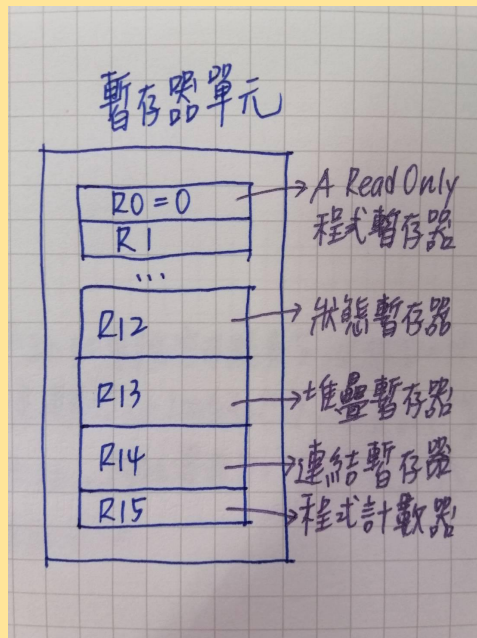 暫存器單元
R0=0
A Read Only
程式暫存器
R1
...
R12
狀態暫存器
R13
堆疊暫存器
R14
連結暫存器
R15
程式計數器